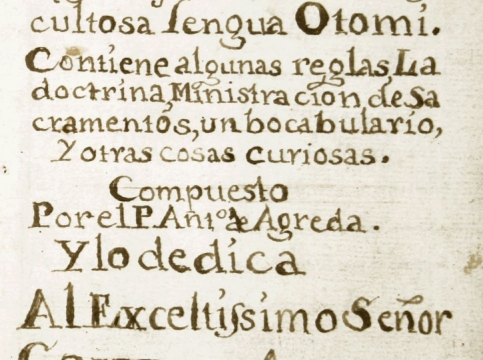 cultosa lengua Otomi.
Contiene algunas reglas, La
doctrina, Ministracion, de Sa
cramentos, un bocabulario,
Y otras cosas curiosas.
Compuesto
Por el P. Antº de Agreda.
Y lo dedica
Al Exceltissimo Señor